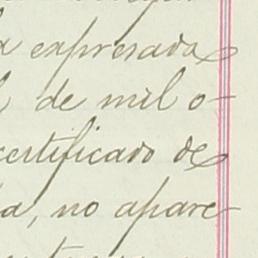 a expresada
de mil o-
certificado de
a, no apare